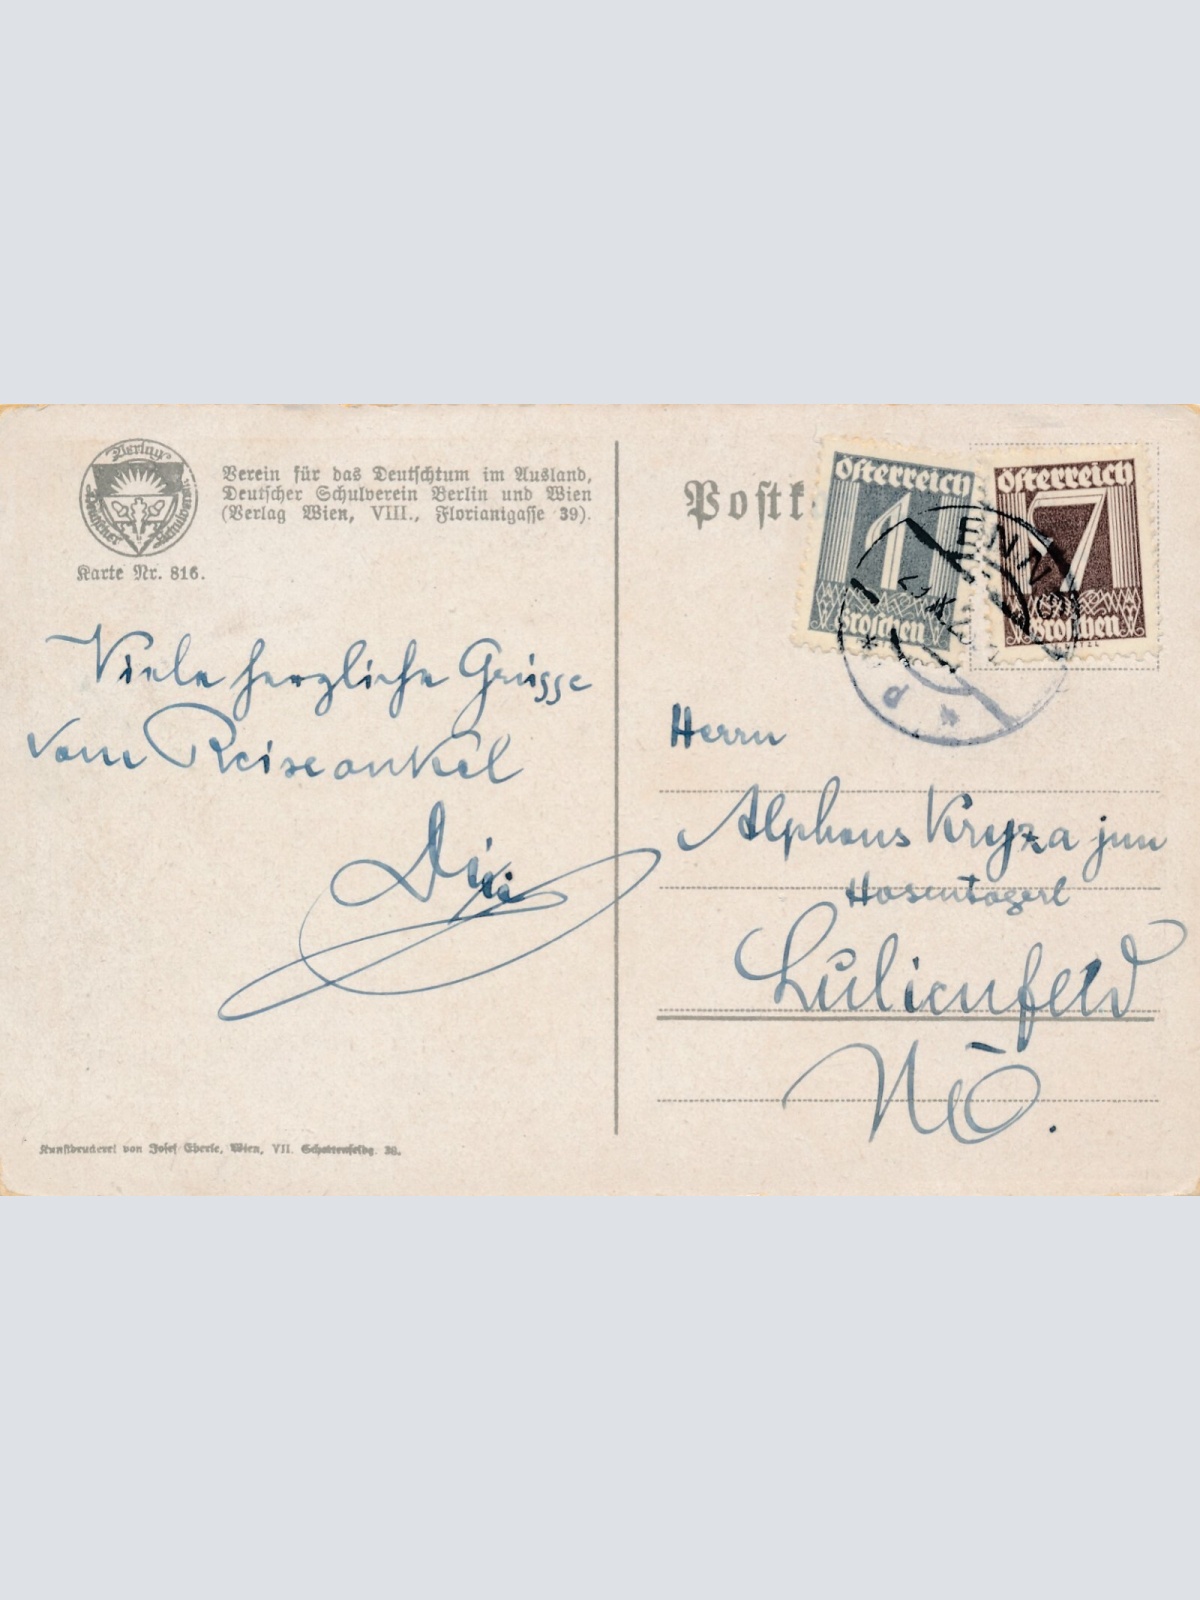 Verlag
Deutscher Schulverein
Verein für das Deutschtum im Ausland,
Deutscher Schulverein Berlin und Wien
(Verlag Wien, VIII., Floriantgasse 39).
Karte Nr. 816.
Viele herzliche Grüsse
vom Reiseonkel
Kunstdruckerei von Josef Eberle, Wien, VII. Schottenfeldg. 38.
Postk
Österreich
1
Groschen
Österreich
7
Groschen
ENNS
Herrn
Alphons Kryza jun
Hosentagerl
Lulienfeld
NÖ.